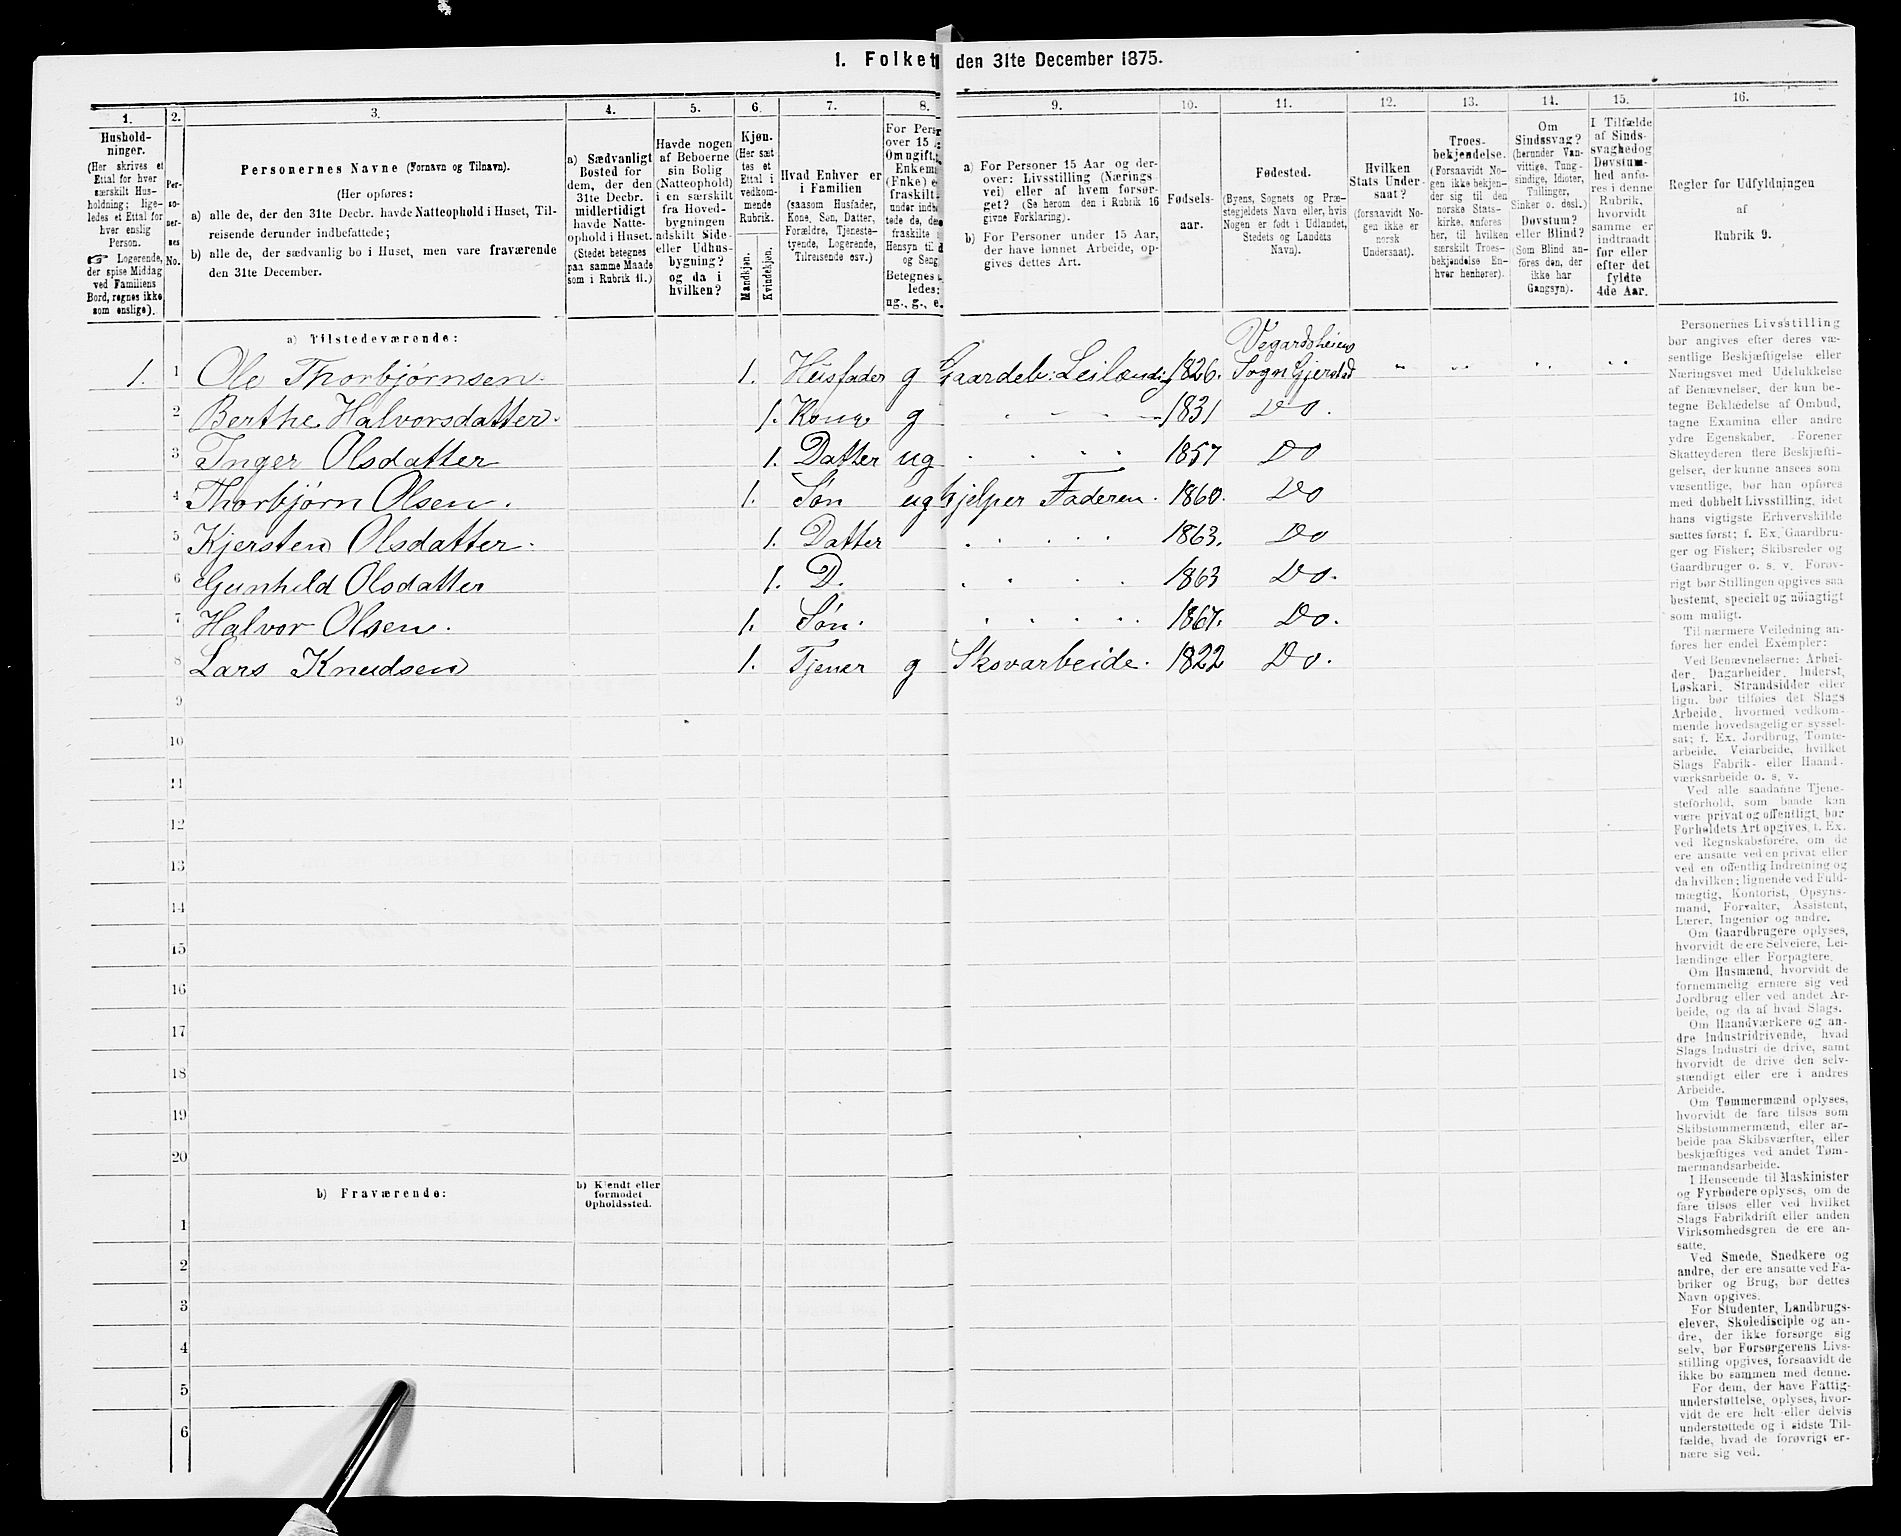 I. Folket den 31te December 1875.
1.
Hushold-
ninger.
(Her skrives et
Ettal for hver
særskilt Hus-
holdning; lige-
ledes et Ettal for
hver enslig
Person.
Logerende,
der spise Middag
ved Familiens
Bord, regnes ikke
som enslige).
2.
Per-
so-
ner-
nes
No.
3.
Personernes Navne (Fornavn og Tilnavn).
(Her opføres:
a) alle de, der den 31te Decbr. havde Natteophold i Huset, Til-
reisende derunder indbefattede;
b) alle de, der sædvanlig bo i Huset, men vare fraværende
den 31te December.
4.
a) Sædvanligt
Bosted for
dem, der den
31te Decbr.
midlertidigt
havde Natte-
ophold i Huset.
(Stedet betegnes
paa samme Maade
som i Rubrik 11.)
5.
Havde nogen
af Beboerne
sin Bolig
(Natteophold)
i en særskilt
fra Hoved-
bygningen
adskilt Side-
eller Udhus-
bygning?
og da i
hvilken?
6.
Kjøn.
(Her sæt
tes et
Ettal i
vedkom-
mende
Rubrik.
Mandkjøn.
Kvindekjøn.
7.
Hvad Enhver er
i Familien
(saasom Husfader,
Kone, Søn, Datter,
Forældre, Tjeneste-
tyende, Logerende,
Tilreisende osv.)
8.
For Pers
over 15
Om ugift,
Enkem
(Enke) e
fraskilt
under indb
tede de, de
fraskilte
Hensyn til
og Seng
Betegnes
ledes:
ug., g., e.
9.
a) For Personer 15 Aar og der-
over: Livsstilling (Nærings
vei) eller af hvem forsør-
get? (Se herom den i Rubrik 16
givne Forklaring).
b) For Personer under 15 Aar,
der have lønnet Arbeide, op-
gives dettes Art.
10.
Fødsels-
aar.
11.
Fødested.
(Byens, Sognets og Præ-
stegjeldets Navn eller, hvis
Nogen er født i Udlandet,
Stedets og Landets
Navn).
12.
Hvilken
Stats Under-
saat?
(forsaavidt No-
gen ikke er
norsk
Undersaat).
13.
Troes-
bekjendelse.
(Forsaavidt No-
gen ikke bekjen-
der sig til den
norske Stats-
kirke, anføres
her, til hvilken
særskilt Troes-
bekjendelse En-
hver henhører).
14.
Om
Sindssvag?
(herunder Van-
vittige, Tung-
sindige, Idioter,
Tullinger,
Sinker o. desl.)
Døvstum?
eller Blind?
(Som Blind an-
føres den, der
ikke har
Gangsyn).
15.
I Tilfælde
af Sinds-
svaghed og
Døvstum-
hed anfø-
res i denne
Rubrik,
hvorvidt
samme er
indtraadt
før eller
efter det
fyldte
4de Aar.
16.
Regler for Udfyldningen
af
Rubrik 9.
a) Tilstedeværende:
Vegardsheiens
1. 1 Ole Thorbjørnsen. 1. Husfader g Gaardeb: Leilændig 1826. Sogn Gjerstad
2 Berthe Halvorsdatter. 1. Kone g 1831 Do.
3 Inger Olsdatter 1. Datter ug 1857 Do
4 Thorbjørn Olsen. 1. Søn ug hjelper Faderen. 1860. Do
5 Kjersten Olsdatter. 1. Datter 1863. Do
6 Gunhild Olsdatter 1. D. 1863 Do.
7 Halvor Olsen. 1. Søn. 1867. Do.
8 Lars Knudsen 1. Tjener g Skovarbeide. 1822 Do.
9
10
11
12
13
14
15
16
17
18
19
20
b) Fraværende:
b) Kjendt eller
formodet
Opholdssted.
1
2
3
4
5
6
Personernes Livsstilling
bør angives efter deres væ-
sentlige Beskjæftigelse eller
Næringsvei med Udelukkelse
af Benævnelser, der kun be-
tegne Beklædelse af Ombud,
tagne Examina eller andre
ydre Egenskaber. Forener
Skatteyderen flere Beskjæfti-
gelser, der kunne ansees som
væsentlige, bør han opføres
med dobbelt Livsstilling, idet
hans vigtigste Erhvervskilde
sættes først; f. Ex. Gaardbru-
ger og Fisker; Skibsreder og
Gaardbruger o. s. v. Forøv-
rigt bør Stillingen opgives saa
bestemt, specielt og nöiagtigt
som muligt.
Til nærmere Veiledning an-
føres her endel Exempler:
Ved Benævnelserne: Arbei-
der, Dagarbeider, Inderst,
Løskarl, Strandsidder eller
lign. bør tilføies det Slags
Arbeide, hvormed vedkom-
mende hovedsagelig er syssel-
sat; f. Ex. Jordbrug, Tomte-
arbeide, Veiarbeide, hvilket
Slags Fabrik- eller Haand-
værksarbeide o. s. v.
Ved alle saadanne Tjene-
steforhold, som baade kan
være privat og offentligt, bør
Forholdets Art opgives, f. Ex.
ved Regnskabsførere, om de
ere ansatte ved en privat eller
ved en offentlig Indretning og
da hvilken; lignende ved Fuld-
mægtig, Kontorist, Opsyns-
mand, Forvalter, Assistent,
Lærer, Ingeniør og andre.
Om Gaardbrugere oplyses,
hvorvidt de ere Selveiere, Lei-
lændinge eller Forpagtere.
Om Husmænd, hvorvidt de
fornemmelig ernære sig ved
Jordbrug eller ved andet Ar-
beide, og da af hvad Slags.
Om Haandværkere og an-
dre Industridrivende, hvad
Slags Industri de drive, samt
hvorvidt de drive den selv-
stændigt eller ere i andres
Arbeide.
Om Tømmermænd oplyses,
hvorvidt de fare tilsøs som
Skibstømmermænd, eller ar-
beide paa Skibsværfter, eller
beskjæftiges ved andet Tøm-
mermandsarbeide.
I Henseende til Maskinister
og Fyrbødere oplyses, om de
fare tilsøs eller ved hvilket
Slags Fabrikdrift eller anden
Virksomhedsgren de ere an-
satte.
Ved Smede, Snedkere og
andre, der ere ansatte ved Fa-
briker og Brug, bør dettes
Navn opgives.
For Studenter, Landbrugs-
elever, Skoledisciple og an-
dre, der ikke forsørge sig
selv, bør Forsørgerens Livs-
stilling opgives, forsaavidt de
ikke bo sammen med denne.
For dem, der have Fattig-
understøttelse, oplyses, hvor-
vidt de ere helt eller delvis
understøttede og i sidste Til-
fælde, hvad de forøvrigt er-
nære sig ved.